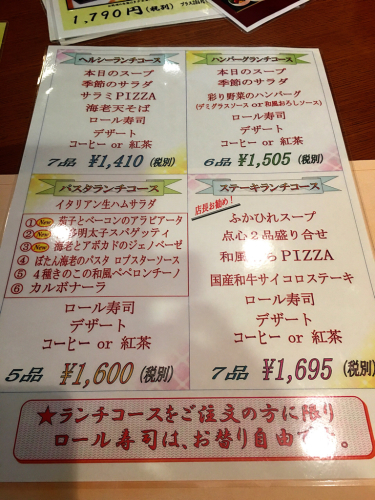 1,790円(税別)
ヘルシーランチコース
本日のスープ
季節のサラダ
サラミPIZZA
海老天そば
ロール寿司
デザート
コーヒー or 紅茶
7品 ¥1,410 (税別)
ハンバーグランチコース
本日のスープ
季節のサラダ
彩り野菜のハンバーグ
(デミグラスソース or 和風おろしソース)
ロール寿司
デザート
コーヒー or 紅茶
6品 ¥1,505 (税別)
パスタランチコース
イタリアン生ハムサラダ
① New 茄子とベーコンのアラビアータ
② New 多明太子スパゲッティ
③ New 海老とアボカドのジェノベーゼ
④ ぼたん海老のパスタ ロブスターソース
⑤ 4種きのこの和風ペペロンチーノ
⑥ カルボナーラ
ロール寿司
デザート
コーヒー or 紅茶
5品 ¥1,600 (税別)
ステーキランチコース
店長お勧め!
ふかひれスープ
点心2品盛り合せ
和風 らPIZZA
国産和牛サイコロステーキ
ロール寿司
デザート
コーヒー or 紅茶
7品 ¥1,695 (税別)
★ランチコースをご注文の方に限り
ロール寿司は、お替り自由です。